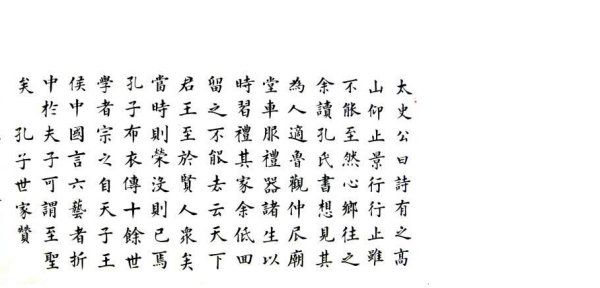 太史公曰詩有之高
山仰止景行行止雖
不能至然心鄉往之
余讀孔氏書想見其
為人適魯觀仲尼廟
堂車服禮器諸生以
時習禮其家余低回
留之不能去云天下
君王至於賢人眾矣
當時則榮沒則已焉
孔子布衣傳十餘世
學者宗之自天子王
侯中國言六藝者折
中於夫子可謂至聖
矣 孔子世家贊